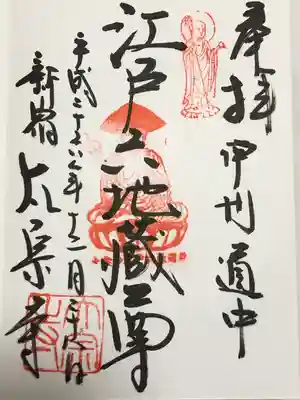 奉拝 甲州道中
江戸六地蔵尊
平成二十六年十二月二十八日
新宿 太宗寺